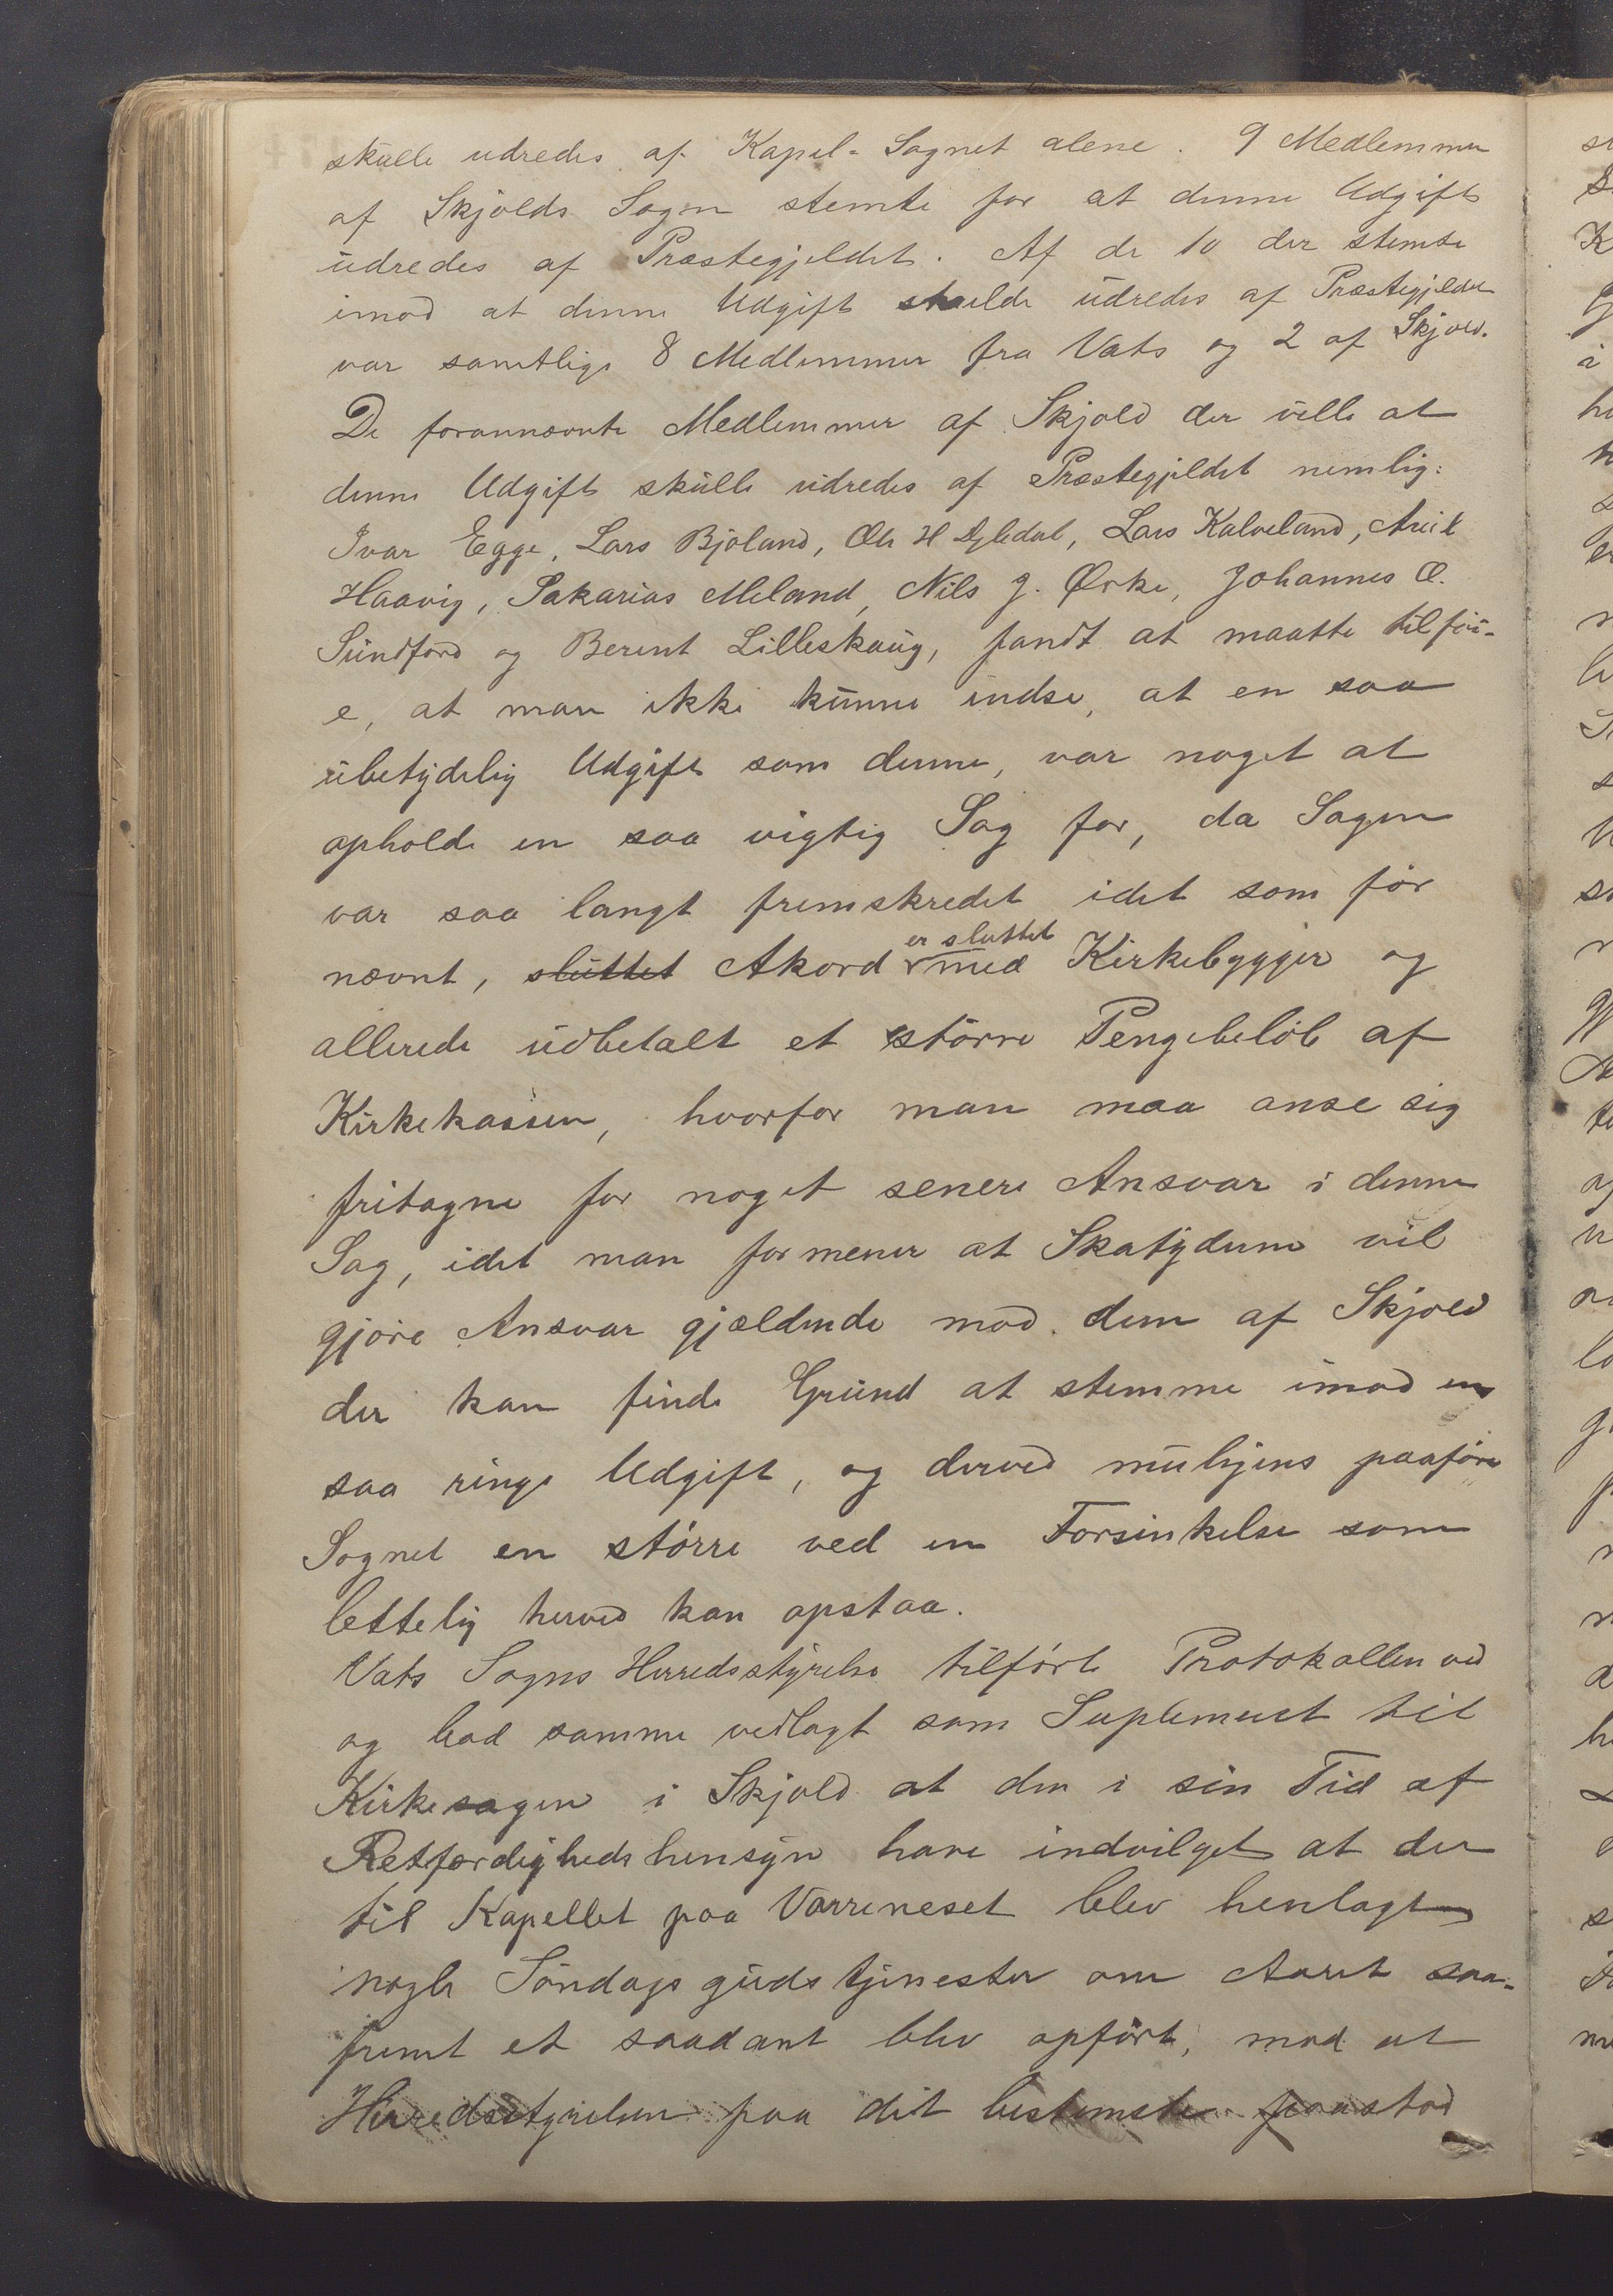 skulle udredes af Kapel-Sognet alene. 9 Medlemmer
af Skjolds Sogn stemte for at denne Udgift
udredes af Præstegjeldet. Af de 10 der stemte
imod at denne Udgift skulde udredes af Præstegjeldet
var samtlige 8 Medlemmer fra Vats og 2 af Skjold.
De forannævnte Medlemmer af Skjold der ville at
denne Udgift skulle udredes af Præstegjeldet nemlig:
Ivar Egge, Lars Bjoland, Ole H Lars Kalveland,
Haavig, Sakarias Meland, Nils J. Ørke, Johannes O.
Sundførd og Berent Lilleskaug, fandt at maatte tilføi-
e, at man ikke kunne indse, at en saa
ubetydelig Udgift som denne, var noget at
opholde en saa vigtig Sag for, da Sagen
var saa langt fremskredet idet som før
nævnt, sluttet Akord er sluttet med Kirkebygger og
allerede udbetalt et større Pengebeløb af
Kirkekassen, hvorfor man maa anse sig
fritagne for noget senere Ansvar i denne
Sag, idet man formener at Skatyderne vil
gjøre Ansvar gjældende mod dem af Skjold
der kan finde Grund at stemme imod en
saa ringe Udgift, og derved muligens paaføre
Sognet en større ved en Forsinkelse som
lettelig herved kan opstaa.
Vats Sogns Herredsstyrelse tilførte Protokollen ved
og bad samme vedlagt som Suplement til
Kirkesagen i Skjold at den i sin Tid af
Retfærdighedshensyn have indvilget at der
til Kapellet paa Vorreneset blev henlagt
nogle Søndagsgudstjenester om Aaret saa-
fremt et saadant blev opført, mod at
Herredsstyrelsen paa det bestemteste paastod